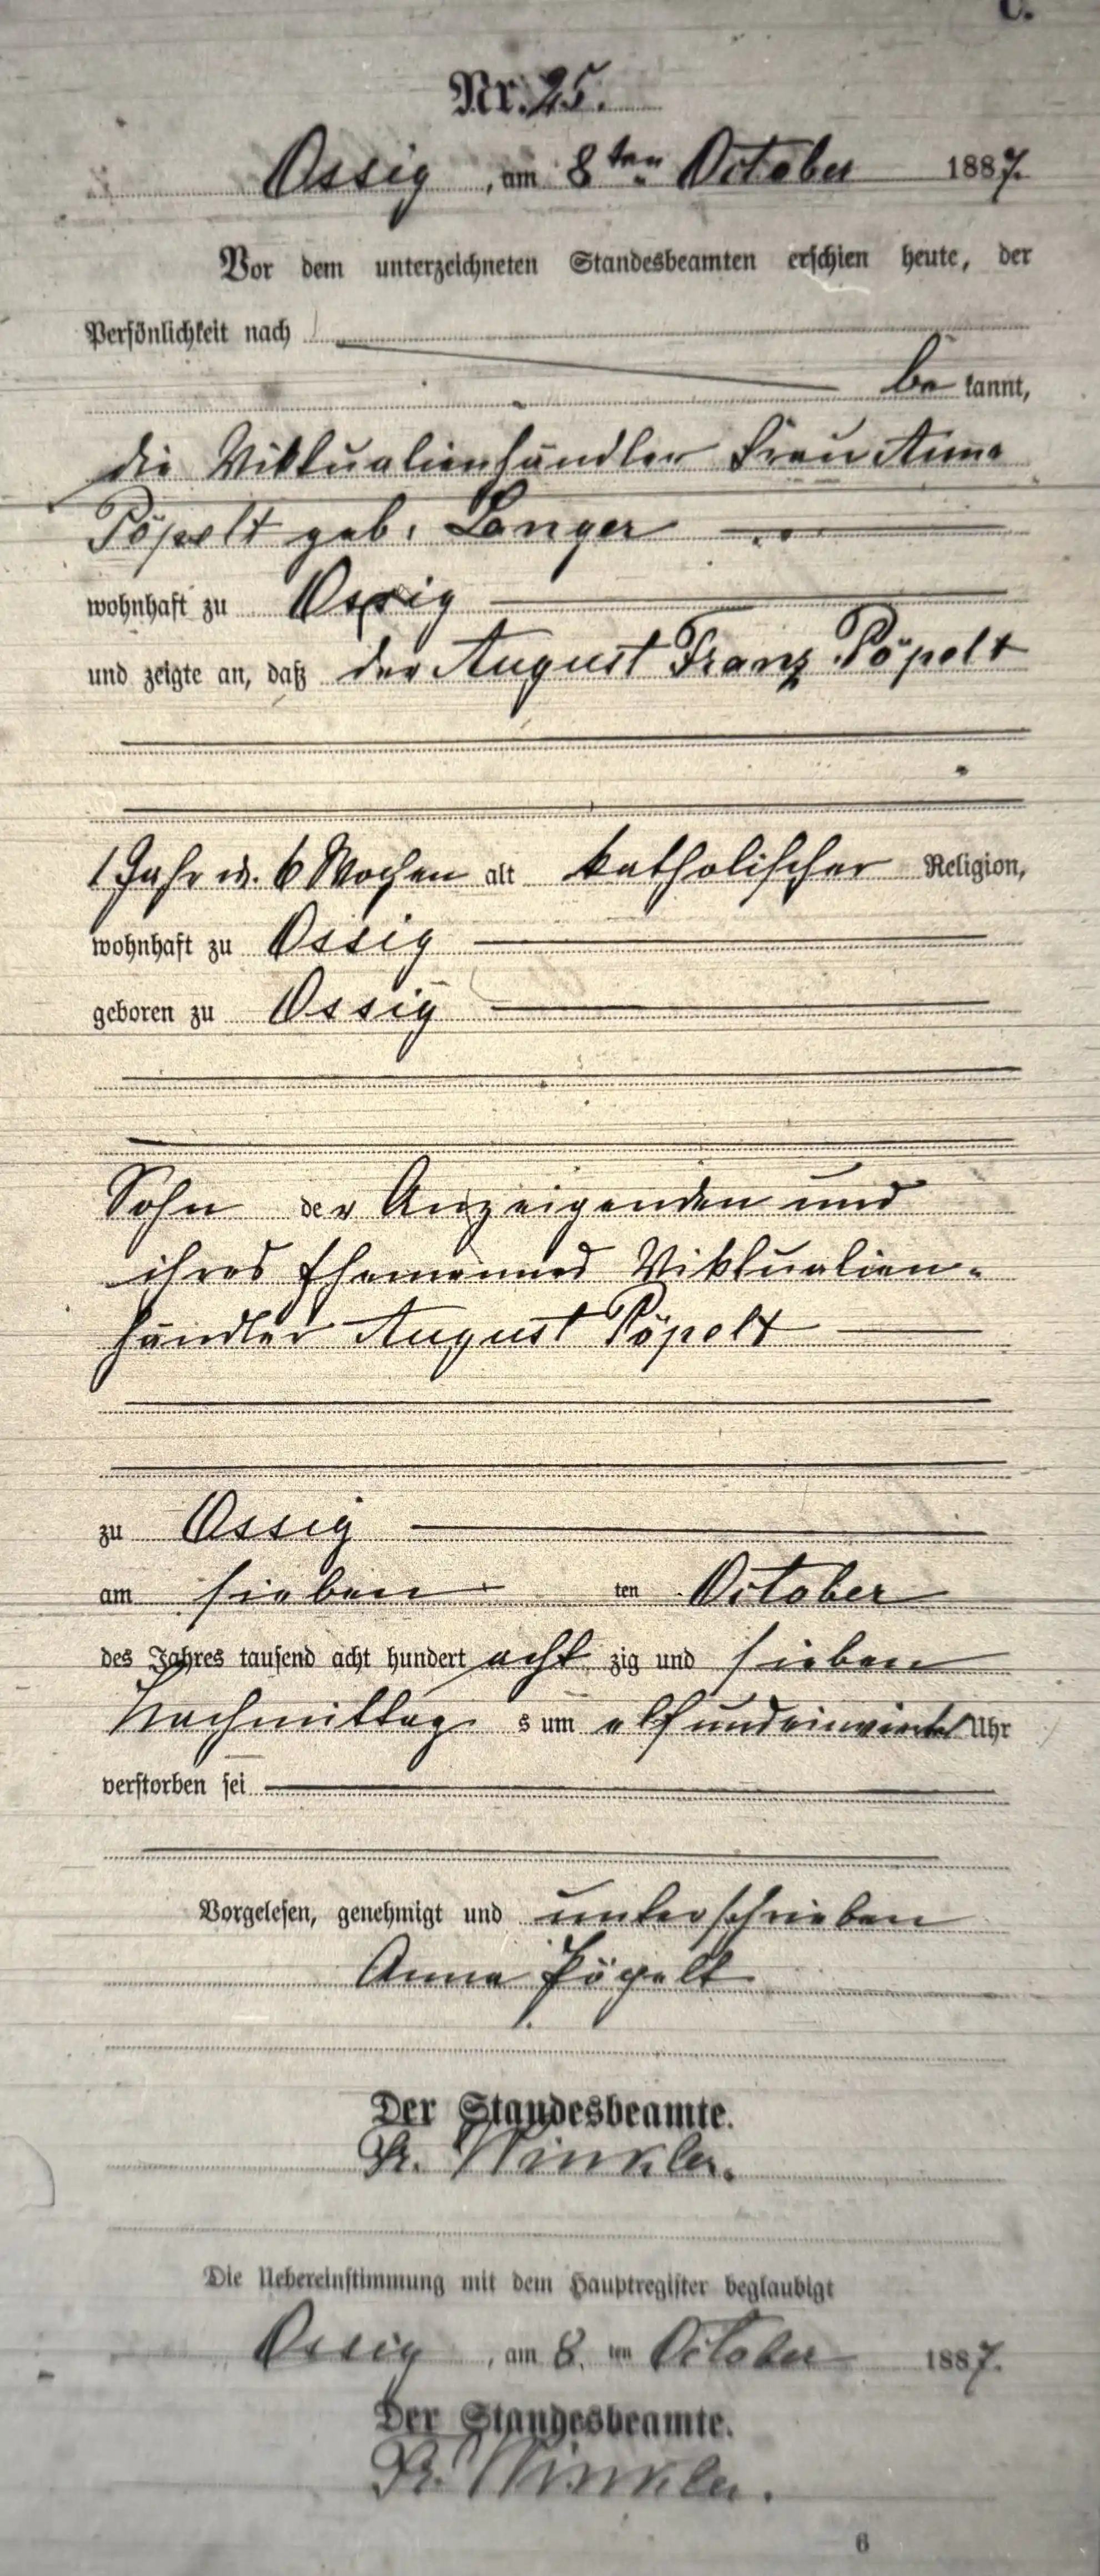 C.
Nr. 25.
Ossig, am 8ten October 1887.
Vor dem unterzeichneten Standesbeamten erschien heute, der
Persönlichkeit nach
be kannt,
die Viktualienhändler Frau Anna
Pöpelt geb. Langer
wohnhaft zu Ossig
und zeigte an, daß der August Franz Pöpelt
1 Jahr u. 6 Wochen alt katholischer Religion,
wohnhaft zu Ossig
geboren zu Ossig
Sohn der Anzeigenden und
ihres Ehemannes Viktualien-
händler August Pöpelt
zu Ossig
am sieben ten October
des Jahres tausend acht hundert acht zig und sieben
Nachmittag s um elf und einviertel Uhr
verstorben sei
Vorgelesen, genehmigt und unterschrieben
Anna Pöpelt
Der Standesbeamte.
Fr. Winkler.
Die Uebereinstimmung mit dem Hauptregister beglaubigt
Ossig, am 8. ten October 1887.
Der Standesbeamte.
Fr. Winkler.
6